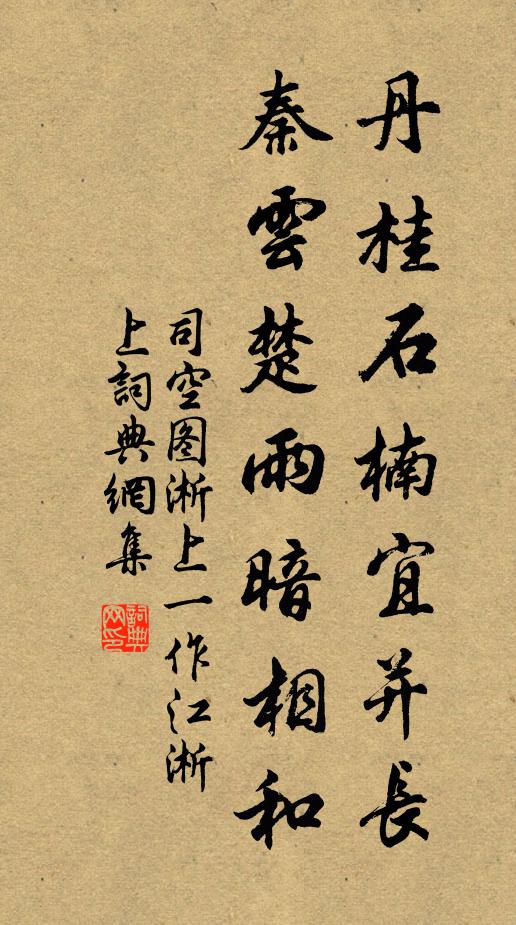 丹桂石楠宜并長
秦雲楚雨暗相和
司空图淅上一作江淅
上詞典網集
詞典网印